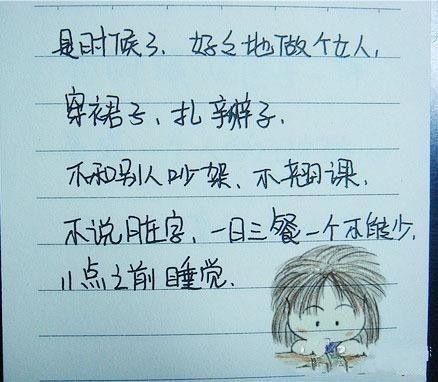 是时候了，好好地做个女人，
穿裙子，扎辫子，
不和别人吵架、不翘课，
不说脏字，一日三餐一个不能少，
11点之前睡觉.